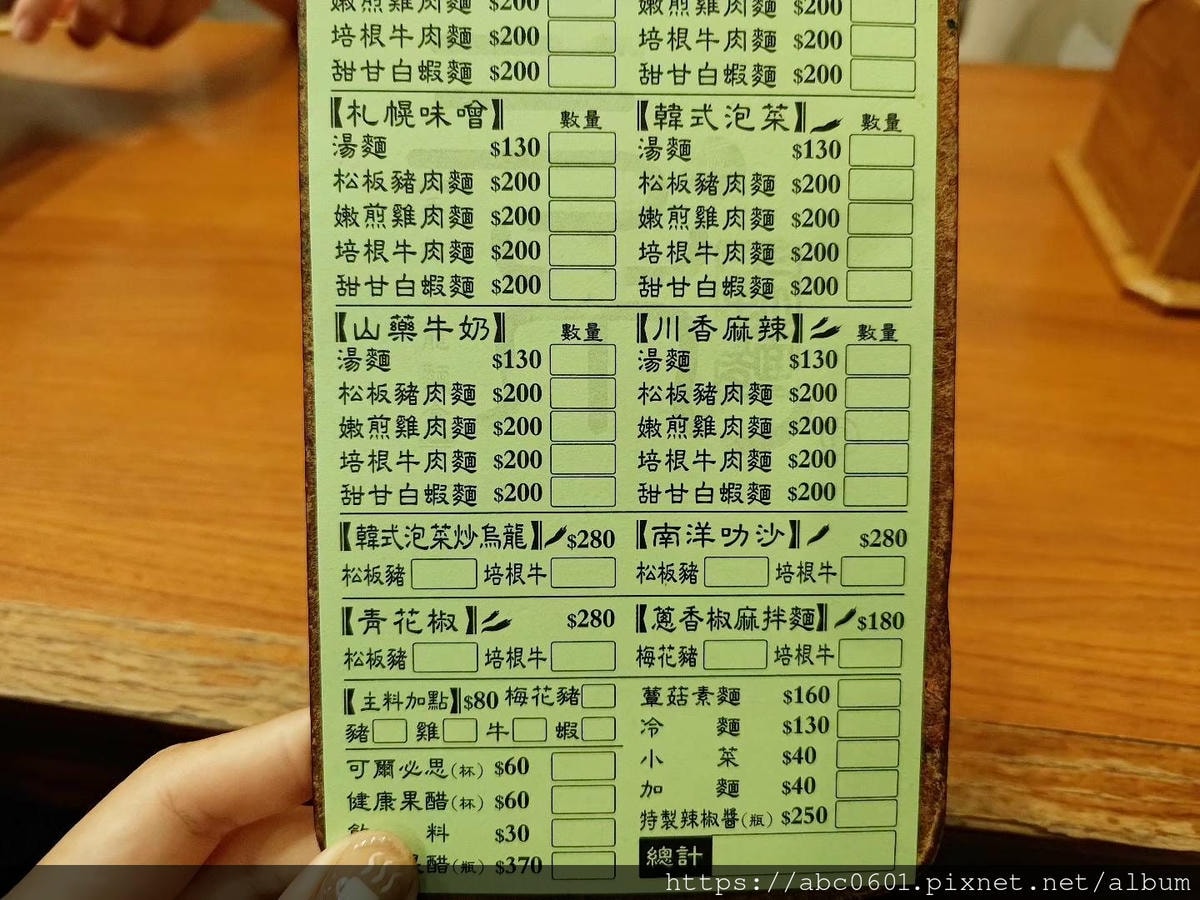 嫩煎雞肉麵 $200 嫩煎雞肉麵 $200
培根牛肉麵 $200 培根牛肉麵 $200
甜甘白蝦麵 $200 甜甘白蝦麵 $200
【札幌味噌】 數量 【韓式泡菜】 數量
湯麵 $130 湯麵 $130
松板豬肉麵 $200 松板豬肉麵 $200
嫩煎雞肉麵 $200 嫩煎雞肉麵 $200
培根牛肉麵 $200 培根牛肉麵 $200
甜甘白蝦麵 $200 甜甘白蝦麵 $200
【山藥牛奶】 數量 【川香麻辣】 數量
湯麵 $130 湯麵 $130
松板豬肉麵 $200 松板豬肉麵 $200
嫩煎雞肉麵 $200 嫩煎雞肉麵 $200
培根牛肉麵 $200 培根牛肉麵 $200
甜甘白蝦麵 $200 甜甘白蝦麵 $200
【韓式泡菜炒烏龍】 $280 【南洋叻沙】 $280
松板豬 培根牛 松板豬 培根牛
【青花椒】 $280 【蔥香椒麻拌麵】 $180
松板豬 培根牛 梅花豬 培根牛
【主料加點】 $80 梅花豬 蕈菇素麵 $160
豬 雞 牛 蝦 冷麵 $130
小菜 $40
可爾必思(杯) $60 加麵 $40
健康果醋(杯) $60 特製辣椒醬(瓶) $250
料 $30 總計
果醋(瓶) $370
https://abc0601.pixnet.net/album